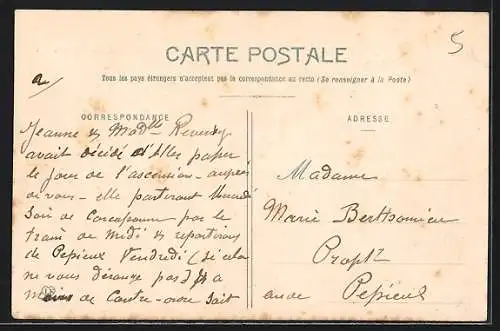 CARTE POSTALE
5
Tous les pays étrangers n'acceptent pas la correspondance au recto (Se renseigner à la Poste)
CORRESPONDANCE
Jeanne & Mad^lle
avait décidé d'Elles passer
le jour de l'ascension - auprès
de vous - elle partiront Mercredi
Soir de Carcassonne par le
train de midi & repartirons
de Pepieux Vendredi (si cela
ne vous dérange pas) & a
Moins de Contre-ordre Soit
ADRESSE
Madame
Marie Berthomieu
Propt^r
Aude Pepieux